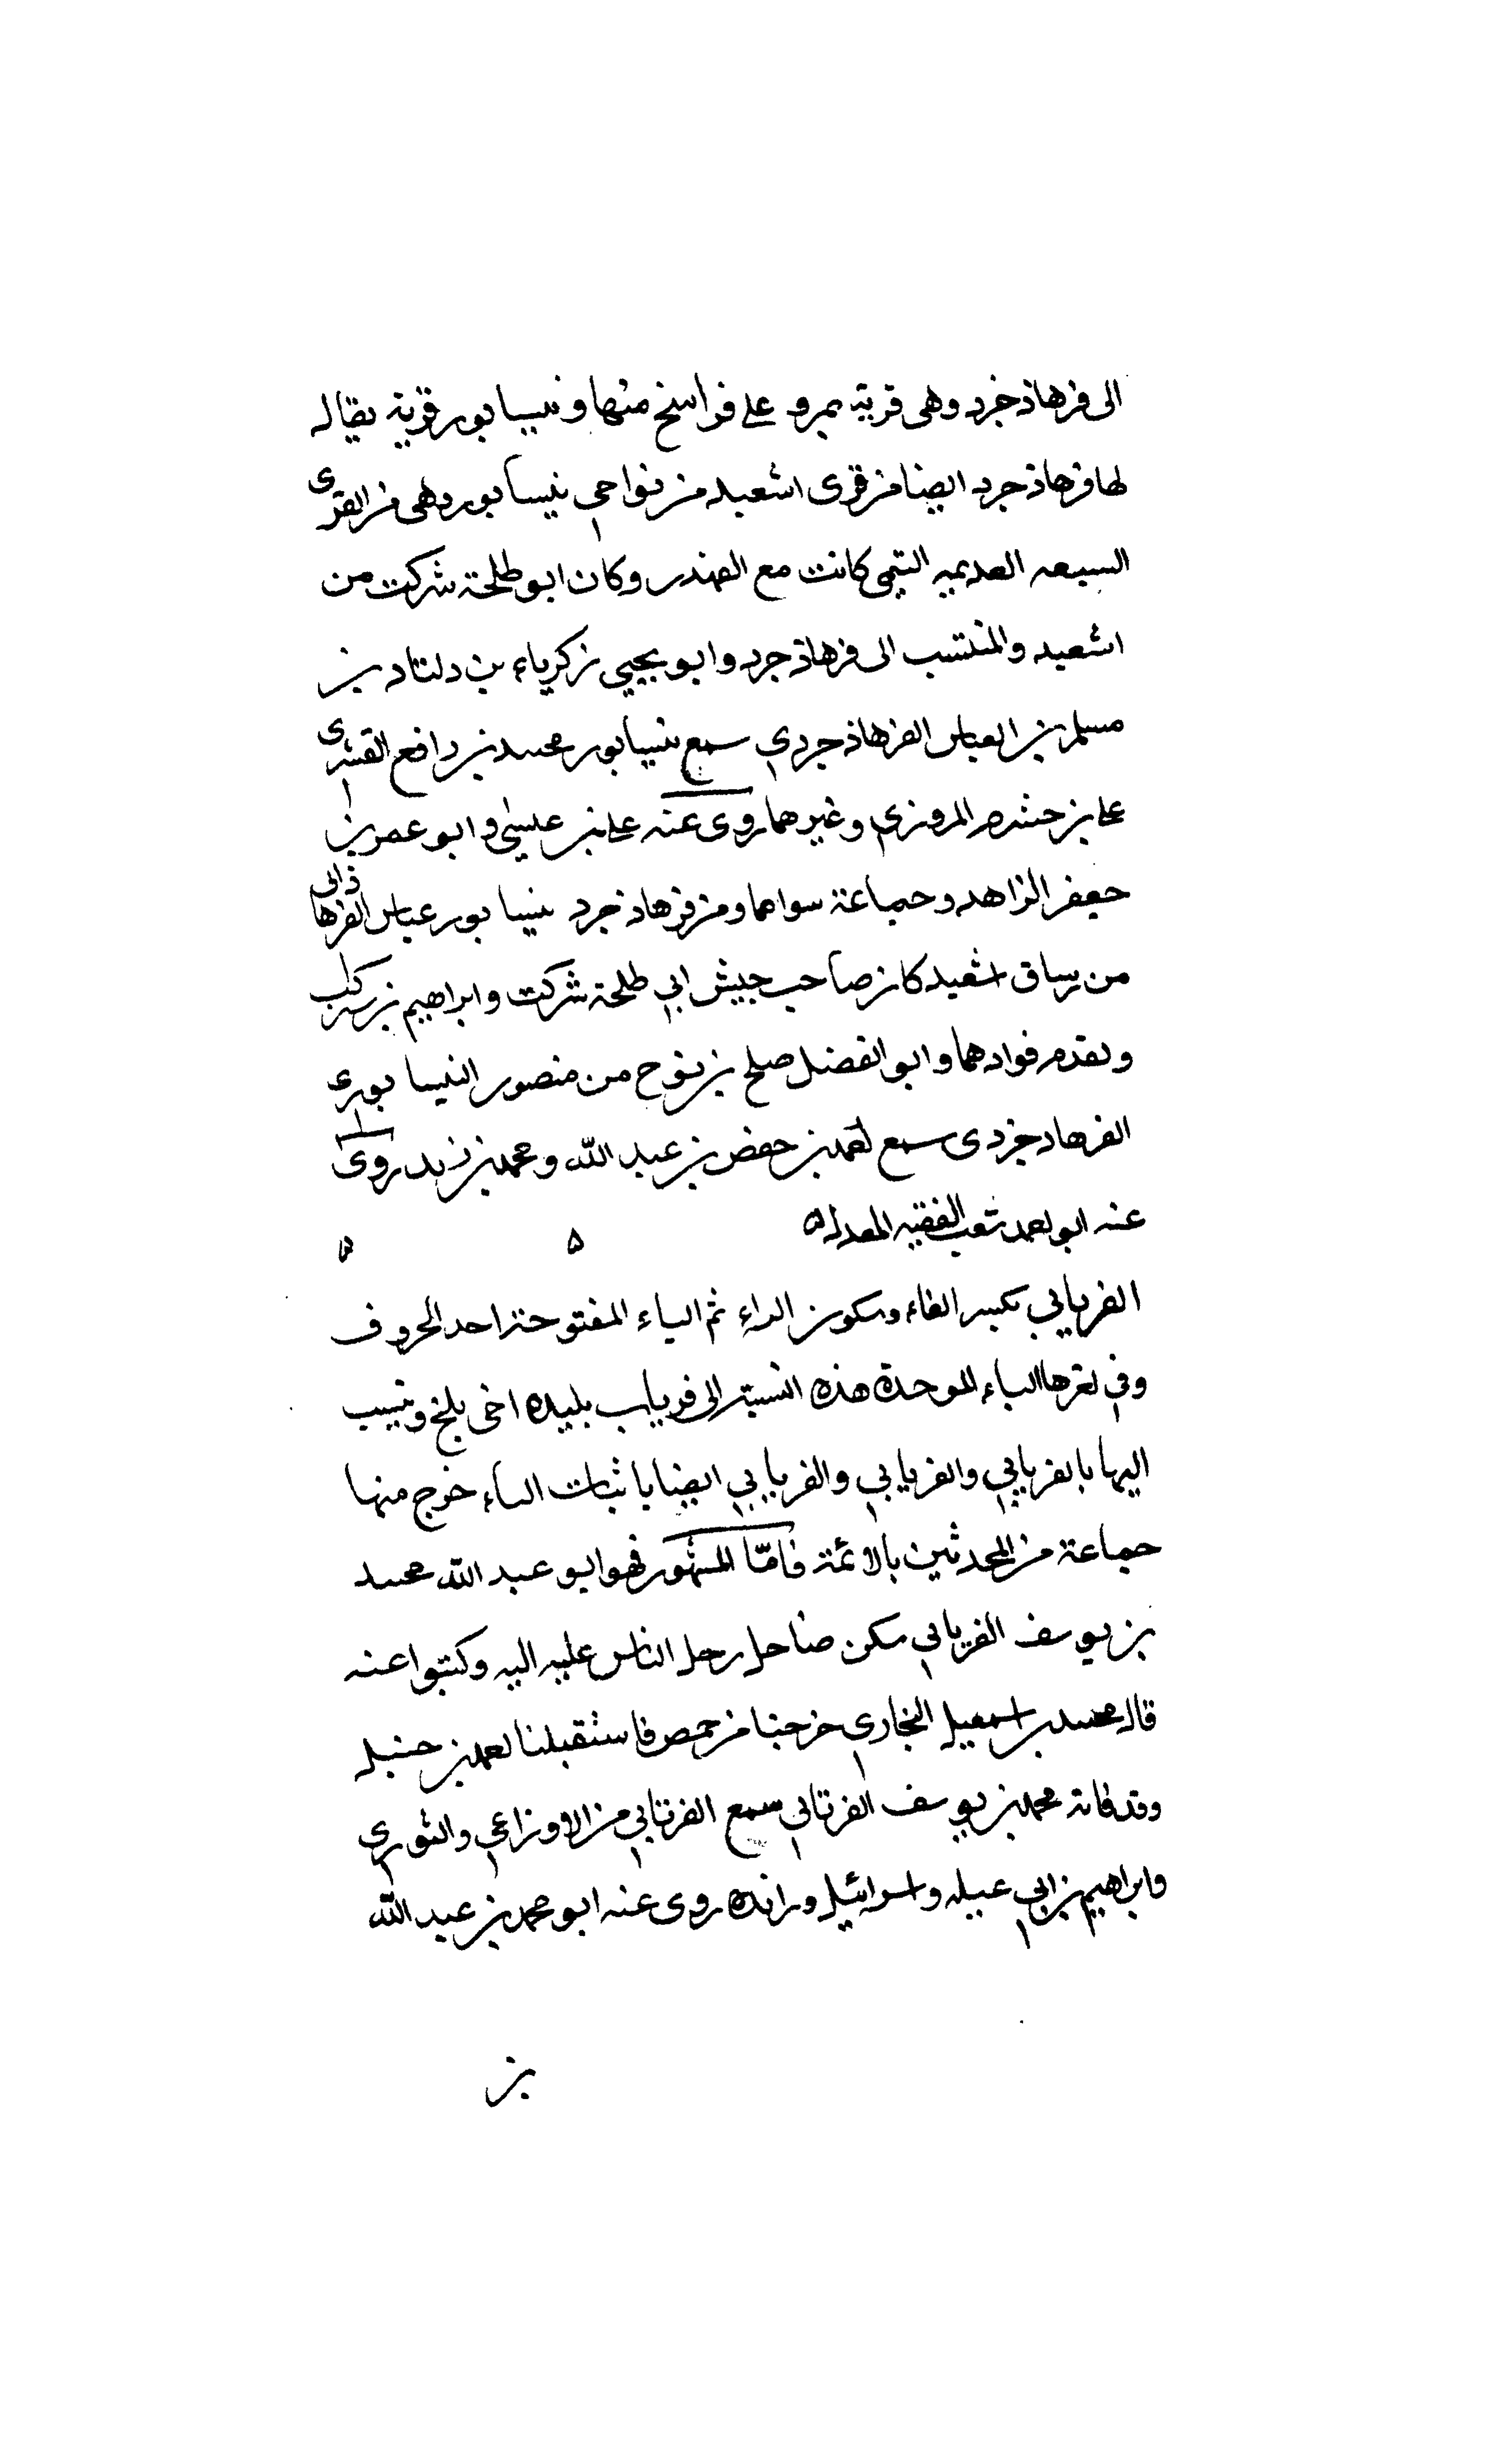 الى فرهاذخرد وهى قرية بمرو على فراسخ منها وبنيسابور قرية يقال
لها فرهاذجرد ايضا من قرى اشعند من نواحى نيسابور وهى من القرى
السبعه العديمه التي كانت مع القهندر وكان ابو طلحة شركت من
اشعيد والمنتسب الى فرهاذجرد وابو يحيى زكرياء بن دلشاد بن
مسلم بن العباس الفرهاذجردي سمع بنيسابور محمد بن رافع القشيرى
على بن خشرم المروزي وغيرهما روى عنه على بن عيسى وابو عمرو بن
جعفر الزاهد وجماعة سواهما ومن فرهاذجرد نيسابور عباس الفرهاذانى
من رساق اشعيد كان صاحب جيش ابي طلحة شركت وابراهيم بن مركب
وتقدم فوادهما وابو الفضل صلح بن نوح من منصور النيسابورى
الفرهادجردى سمع احمد بن حفص بن عبد الله ومحمد بن زيد روى
عنه ابو احمد شعيب الفقيه المعدل
الفريابي بكسر الفاء وسكون الراء ثم الياء المفتوحة احد الحروف
وفي اخرها الباء الموحدة هذه النسبة الى فرياب بليده اخى بلخ وينسب
اليها بالفريابي والفريابي والفريابي ايضا باثبات الياء خرج منها
جماعة من المحدثين بالائمة فامّا المشهور فهو ابو عبد الله محمد
بن يوسف الفريابي سكن صاحل رحل الناس عليه اليه وكتبوا عنه
قال محمد بن اسمعيل البخارى خرجنا من حمص فاستقبلنا احمد بن حنبل
وقد فاته محمد بن يوسف الفرتابي سمع الفرتابي من الاوزاعي والثوري
وابراهيم بن ابي عبله واسرائيل وزائده روى عنه ابو محمد بن عبد الله
بن